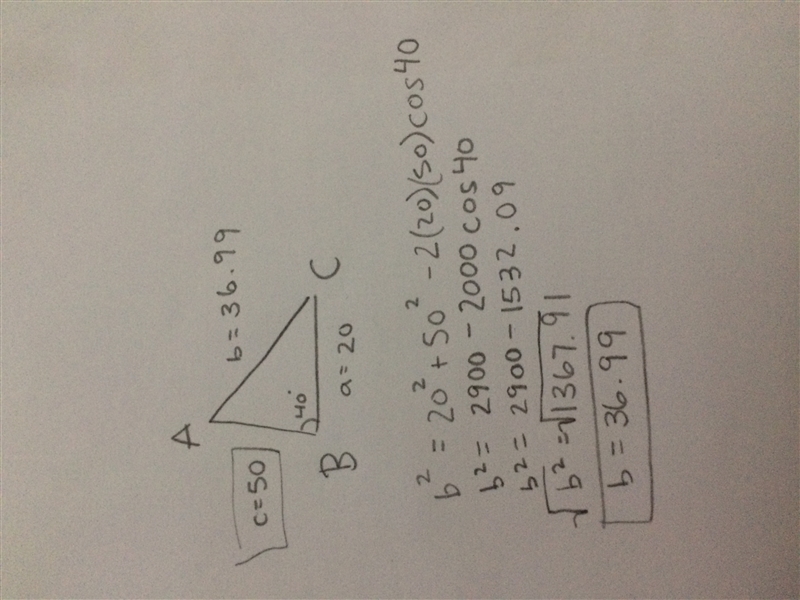 A
c=50
b = 36.99
40°
B
a = 20
C
b² = 20² + 50² - 2(20)(50)cos40
b² = 2900 - 2000cos40
b² = 2900 - 1532.09
√b² = √1367.91
b = 36.99